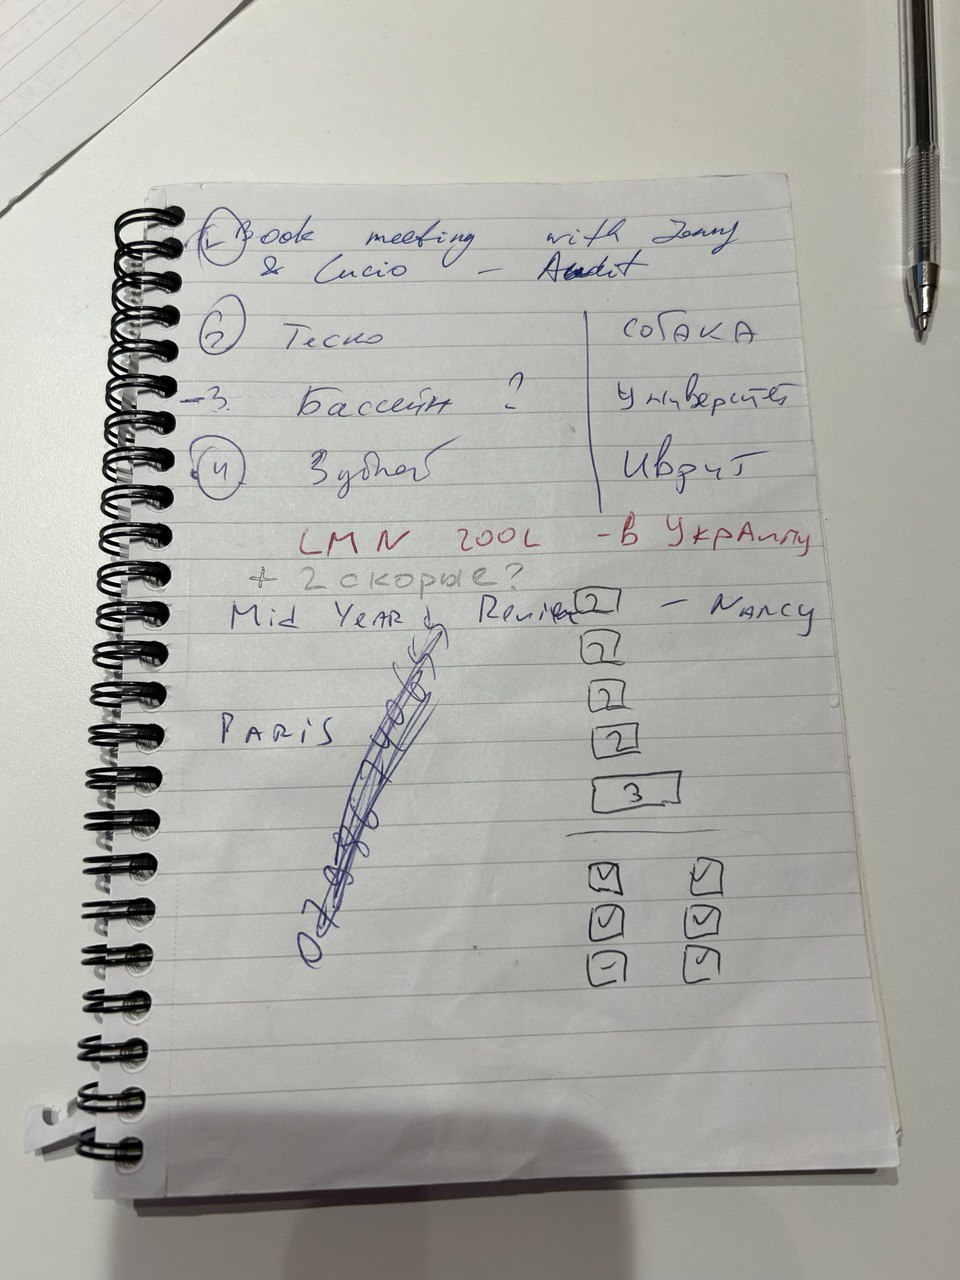 1. Book meeting with Jenny
& Lucio - Audit
2 Теско
- 3. Бассейн ?
4 Зубной
собака
Университет
Иврит
LMN 200L - в Украину
+ 2 скорые?
Mid Year Review - Nancy
2
2
2
2
3
Paris